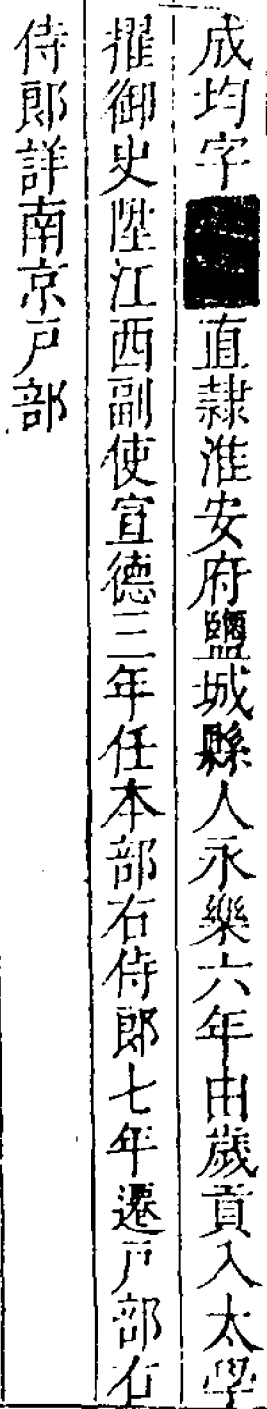 成均字直隷淮安府鹽城縣人永樂六年由歲貢入太學
擢御史陞江西副使宣德三年任本部右侍郎七年遷戸部右
侍郎詳南京戸部